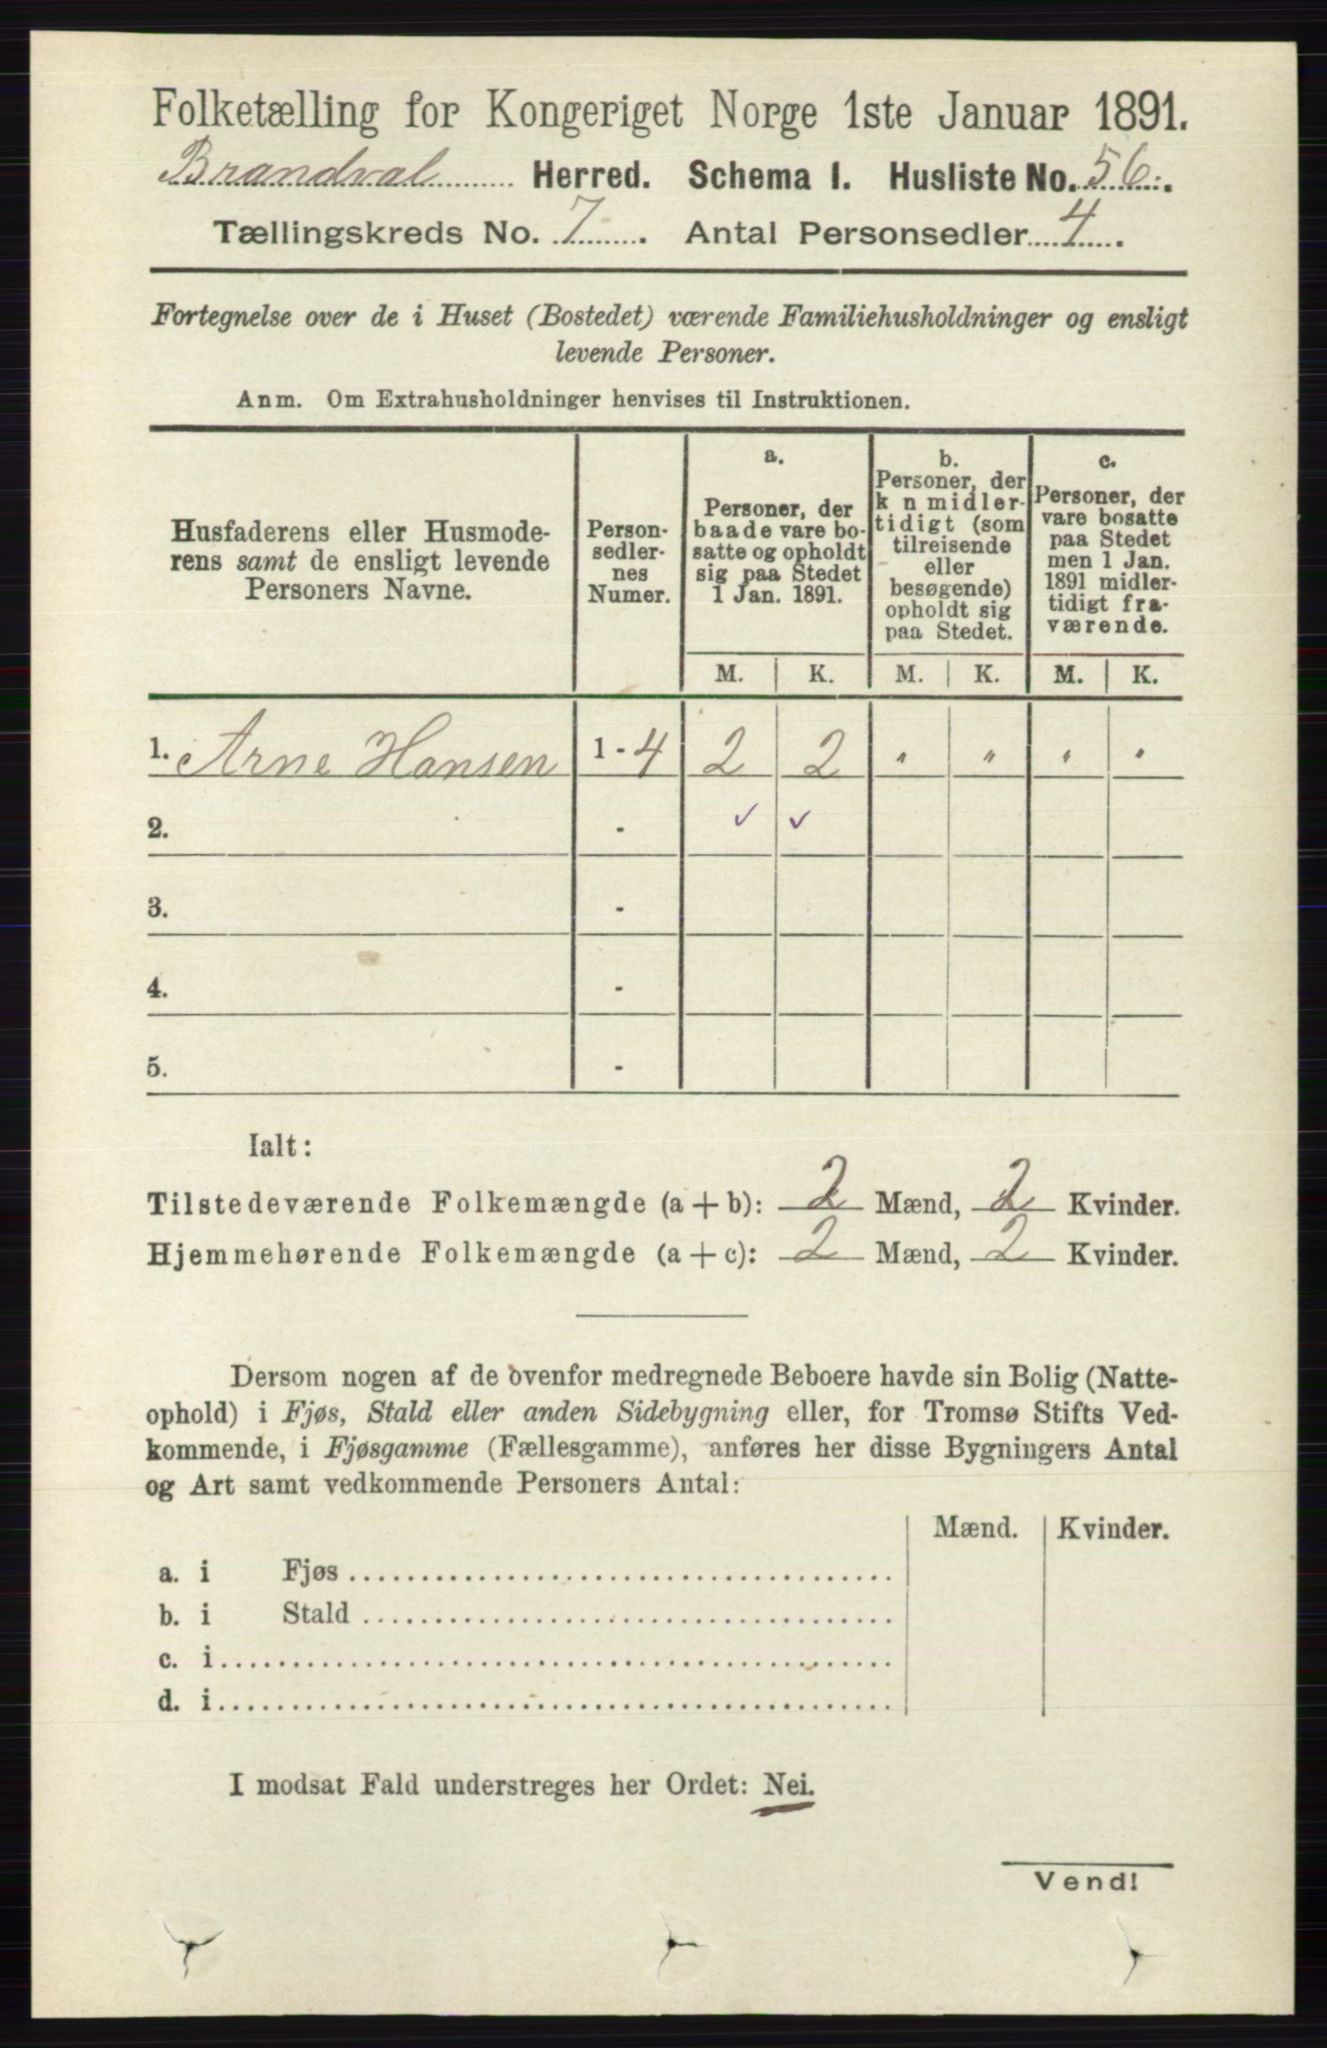 Folketælling for Kongeriget Norge 1ste Januar 1891.
Brandval Herred. Schema I. Husliste No. 56.
Tællingskreds No. 7. Antal Personsedler 4.
Fortegnelse over de i Huset (Bostedet) værende Familiehusholdninger og ensligt
levende Personer.
Anm. Om Extrahusholdninger henvises til Instruktionen.
Husfaderens eller Husmode-
rens samt de ensligt levende
Personers Navne.
Person-
sedler-
nes
Numer.
a.
Personer, der
baade vare bo-
satte og opholdt
sig paa Stedet
1 Jan. 1891.
b.
Personer, der
k n midler-
tidigt (som
tilreisende
eller
besøgende)
opholdt sig
paa Stedet.
c.
Personer, der
vare bosatte
paa Stedet
men 1 Jan.
1891 midler-
tidigt fra-
værende.
M. K. M. K. M. K.
1. Arne Hansen 1 - 4 2 2 " " " "
2. - ✓ ✓
3. -
4. -
5. -
Ialt:
Tilstedeværende Folkemængde (a + b): 2 Mænd, 2 Kvinder.
Hjemmehørende Folkemængde (a + c): 2 Mænd, 2 Kvinder.
Dersom nogen af de ovenfor medregnede Beboere havde sin Bolig (Natte-
ophold) i Fjøs, Stald eller anden Sidebygning eller, for Tromsø Stifts Ved-
kommende, i Fjøsgamme (Fællesgamme), anføres her disse Bygningers Antal
og Art samt vedkommende Personers Antal:
Mænd. Kvinder.
a. i Fjøs
b. i Stald
c. i
d. i
I modsat Fald understreges her Ordet: Nei.
Vend!